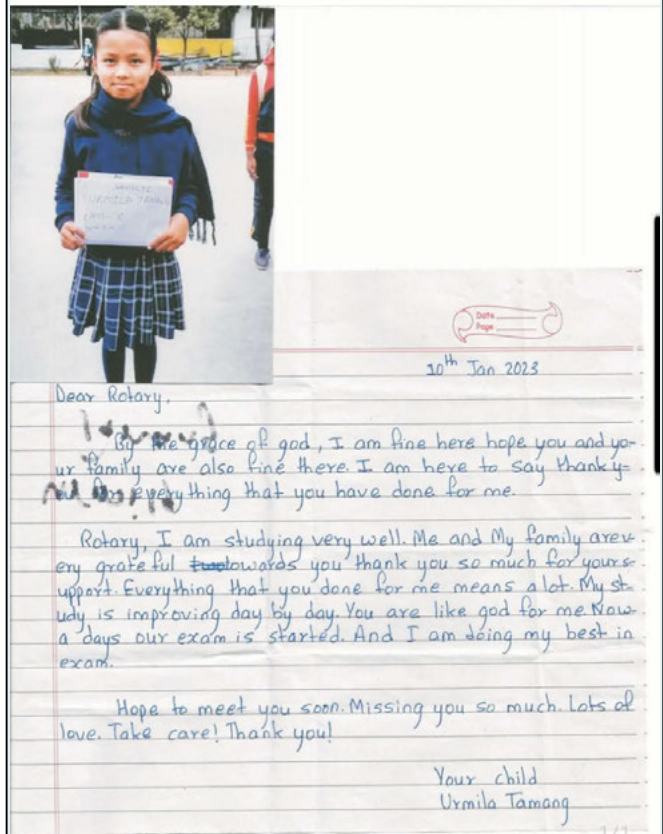 URMILA TAMANG
Date
Page
10th Jan 2023
Dear Rotary,
By the grace of god, I am fine here hope you and yo-
ur family are also fine there. I am here to say thank y-
for everything that you have done for me.
Rotary, I am studying very well. Me and My family are v-
ery grateful towards you thank you so much for your s-
upport. Everything that you done for me means a lot. My st-
udy is improving day by day. You are like god for me. Now
a days our exam is started. And I am doing my best in
exam.
Hope to meet you soon. Missing you so much. Lots of
love. Take care! Thank you!
Your child
Urmila Tamang
1/1